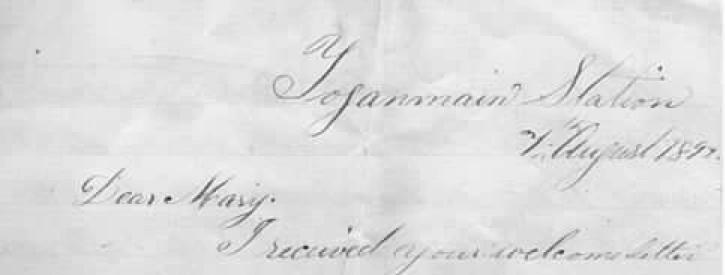 Toganmain Station
7th August 189
Dear Mary.
I received your welcome letter